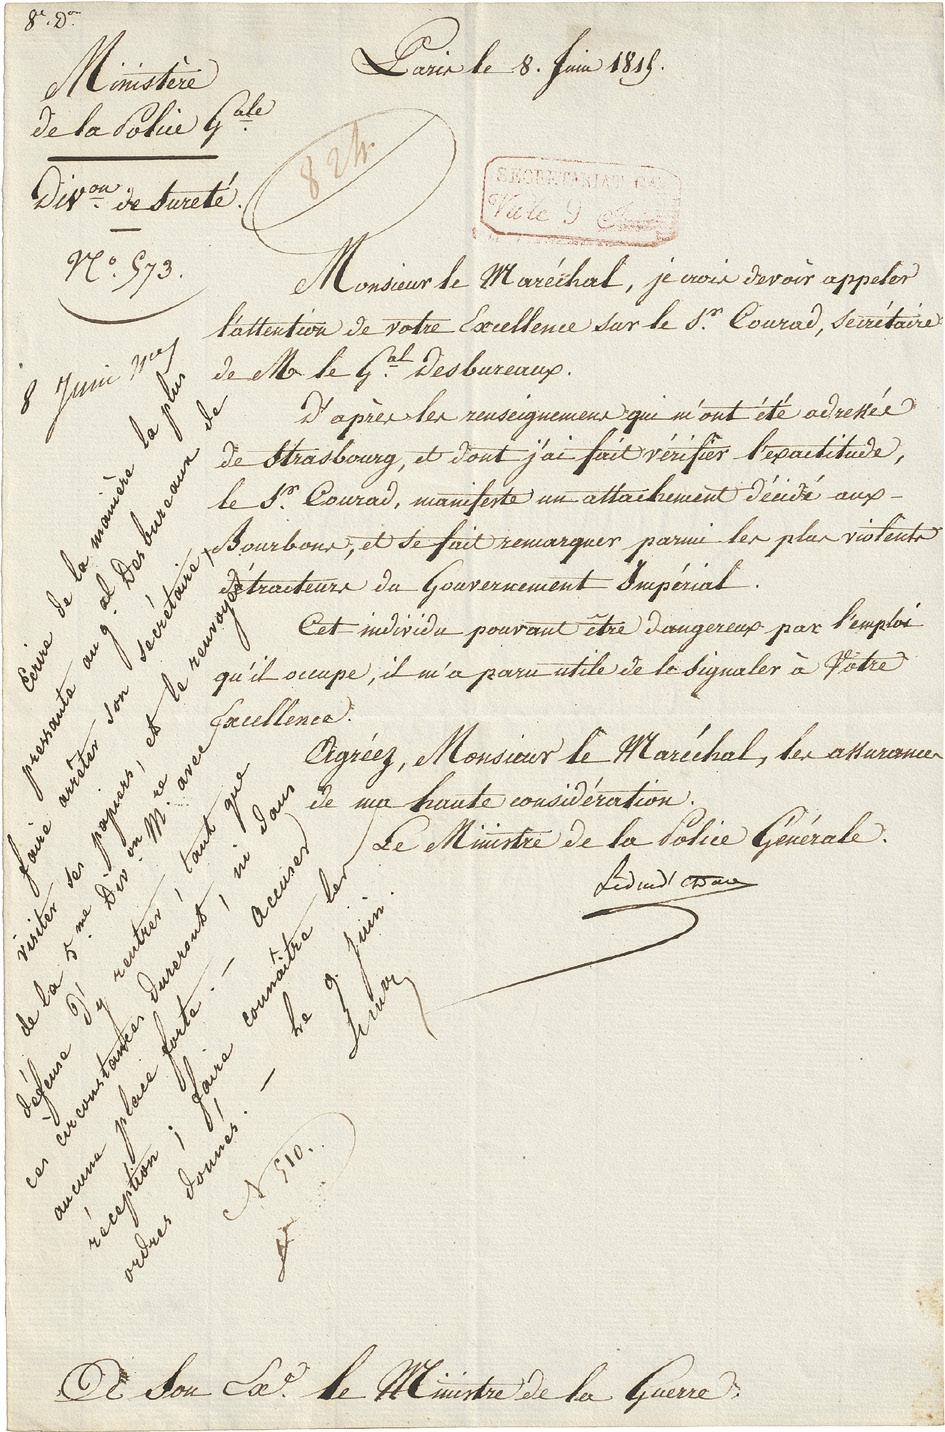 8e. Don
Paris le 8. Juin 1815.
Ministère
de la Police Gale
Divon. de Sureté.
No. 573.
824
SECRETARIAT
9
Monsieur le Maréchal, je crois devoir appeler
l'attention de votre Excellence sur le Sr. Courad, secrétaire
de Mr le Gal. Desbureaux.
D'après les renseignemens qui m'ont été adressés
de Strasbourg, et dont j'ai fait vérifier l'exactitude,
le Sr. Courad, manifeste un attachement décidé aux
Bourbons, et se fait remarquer parmi les plus violents
détracteurs du Gouvernement Impérial.
Cet individu pouvant être dangereux par l'emploi
qu'il occupe, il m'a paru utile de le signaler à Votre
Excellence.
Agréez, Monsieur le Maréchal, les assurances
de ma haute considération.
Le Ministre de la Police Générale.
8 Juin
Ecrire de la manière la plus
pressante au gal Desbureaux de
faire arrêter son secrétaire,
visiter ses papiers, et le renvoyer
de la 5me Divon Mre avec
défense d'y rentrer, tant que
ces circonstances dureront, ni dans
aucune place forte. — Accuser
réception; faire connaître les
ordres donnés. — Le 9 juin.
N 510.
A Son Exce. le Ministre de la Guerre.